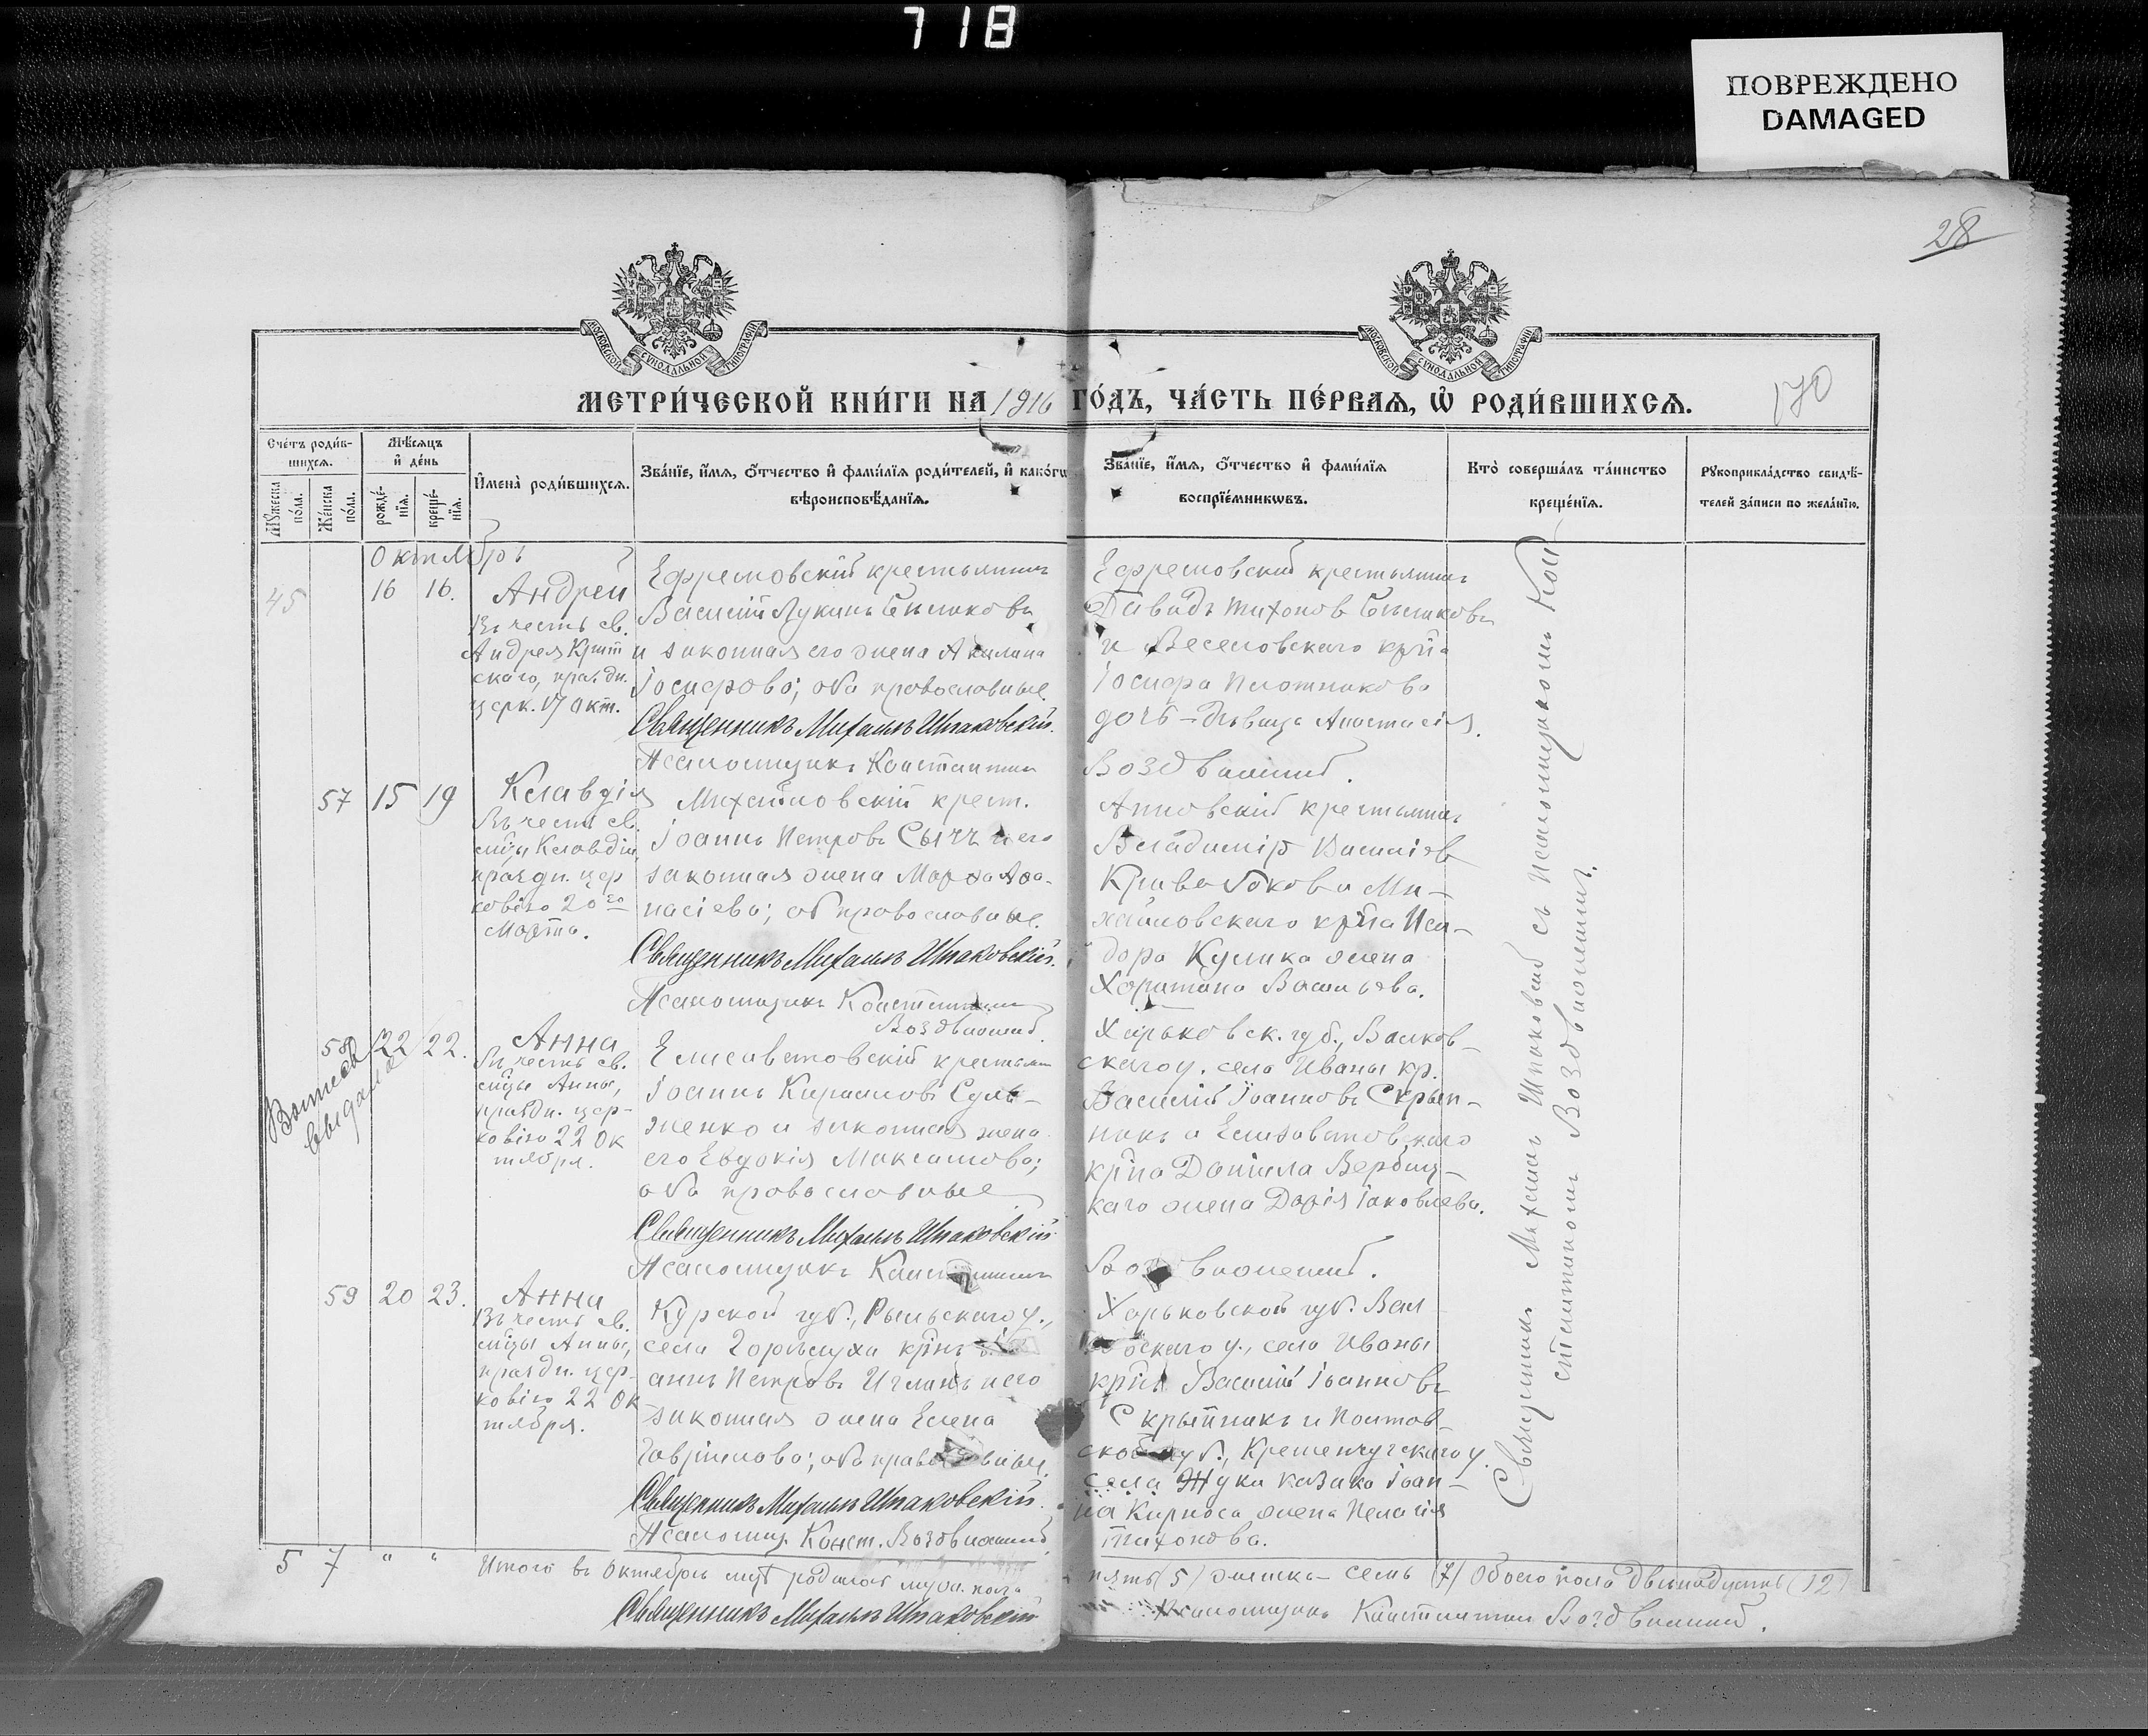 718
ПОВРЕЖДЕНО
DAMAGED
28
МОСКОВСКОЙ СѴНОДАЛЬНОЙ ТИПОГРАФІИ
МОСКОВСКОЙ СѴНОДАЛЬНОЙ ТИПОГРАФІИ
МЕТРИ́ЧЕСКОЙ КНИ́ГИ НА 1916 ГО́ДЪ, ЧА́СТЬ ПЕ́РВАЯ, Ѡ РОДИ́ВШИХСЯ.
170
Сче́тъ роди́в-
шихся.
Мꙋжеска по́ла.
Же́нска по́ла.
Мѣ́сяцъ
и҆ де́нь
рожде́-
нїя.
креще́-
нїя.
И҆мена̀ роди́вшихся.
Зва́нїе, и҆́мя, ѻ҆́тчество и҆ фами́лїя роди́телей, и҆ како́гѡ
вѣроисповѣ́данїя.
Зва́нїе, и҆́мя, ѻ҆́тчество и҆ фами́лїя
воспрїе́мникѡвъ.
Кто̀ соверша́лъ та́инство
креще́нїя.
Рꙋкоприкла́дство свидѣ́-
телей за́писи по жела́нїю.
Октябрь
45
16
16.
Андрей
Въ честь св.
Андрея Крит
скаго, праздн.
церк. 17 Окт.
Ефремовскій крестьянинъ
Василій Лукинъ Бѣликовъ
и законная его жена Акилина
Іосифова; оба православные.
Священникъ Михаилъ Шпаковскій.
Псаломщикъ Константинъ
Ефремовскій крестьянинъ
Давидъ Тихоновъ Бѣликовъ
и Веселовскаго кр-на
Іосифа Плотникова
дочь – дѣвица Анастасія.
Воздвиженский.
57
15
19
Клавдія
Въ честь св.
мцы Клавдіи,
праздн. цер
ковію 20го
Марта.
Михайловскій крест.
Іоаннъ Петровъ Сычъ и его
законная жена Марѳа Аѳа-
насіева; об. православные.
Священникъ Михаилъ Шпаковскій.
Псаломщикъ Константинъ
Воздвиженский.
Анновскій крестьянинъ
Владиміръ Василіевъ
Кривобоковъ и Ми-
хайловскаго кр-на Иси-
дора Кулика жена
Харитина Васильева.
58
22
22.
Выписъ
выдана
Анна
Въ честь св.
мцы Анны,
праздн. цер-
ковію 22 Ок
тября.
Елисаветовскій крестьян
Іоаннъ Кирилловъ Суль-
женко и законная жена
его Евдокія Максимова;
оба православные
Священникъ Михаилъ Шпаковскій
Псаломщикъ Константинъ
Харьковск. губ., Валков-
скаго у. села Иваны кр.
Василій Іоанновъ Скрып-
никъ и Елизаветовскаго
кр-на Даніила Вербиц-
каго жена Дарія Іаковлева.
Воздвиженский.
59
20
23.
Анна
Въ честь св.
мцы Анны,
праздн. цер-
ковію 22 Ок
тября.
Курской губ., Рыльскаго у.,
села кр-нъ Іо
аннъ Петровъ и его
законная жена Елена
Гавріилова; оба православные.
Священникъ Михаилъ Шпаковскій.
Псаломщ. Конст. Воздвиженский
Харьковской губ. Вал
ковскаго у., села Иваны
кр-нъ Василій Іоанновъ
Скрыпникъ и Полтав-
ской губ., Кременчугскаго у.
села Жуки казака Іоан-
на Кирноса жена Пелагія
Тихонова.
Священникъ Михаилъ Шпаковскій съ псаломщикомъ Кон
стантиномъ Воздвиженскимъ.
5 7 " " Итого въ Октябрѣ родилось муж. пола пять (5) женска – семь (7) Обоего пола двѣнадцать (12)
Священникъ Михаилъ Шпаковскій
Псаломщикъ Константинъ Воздвиженский.